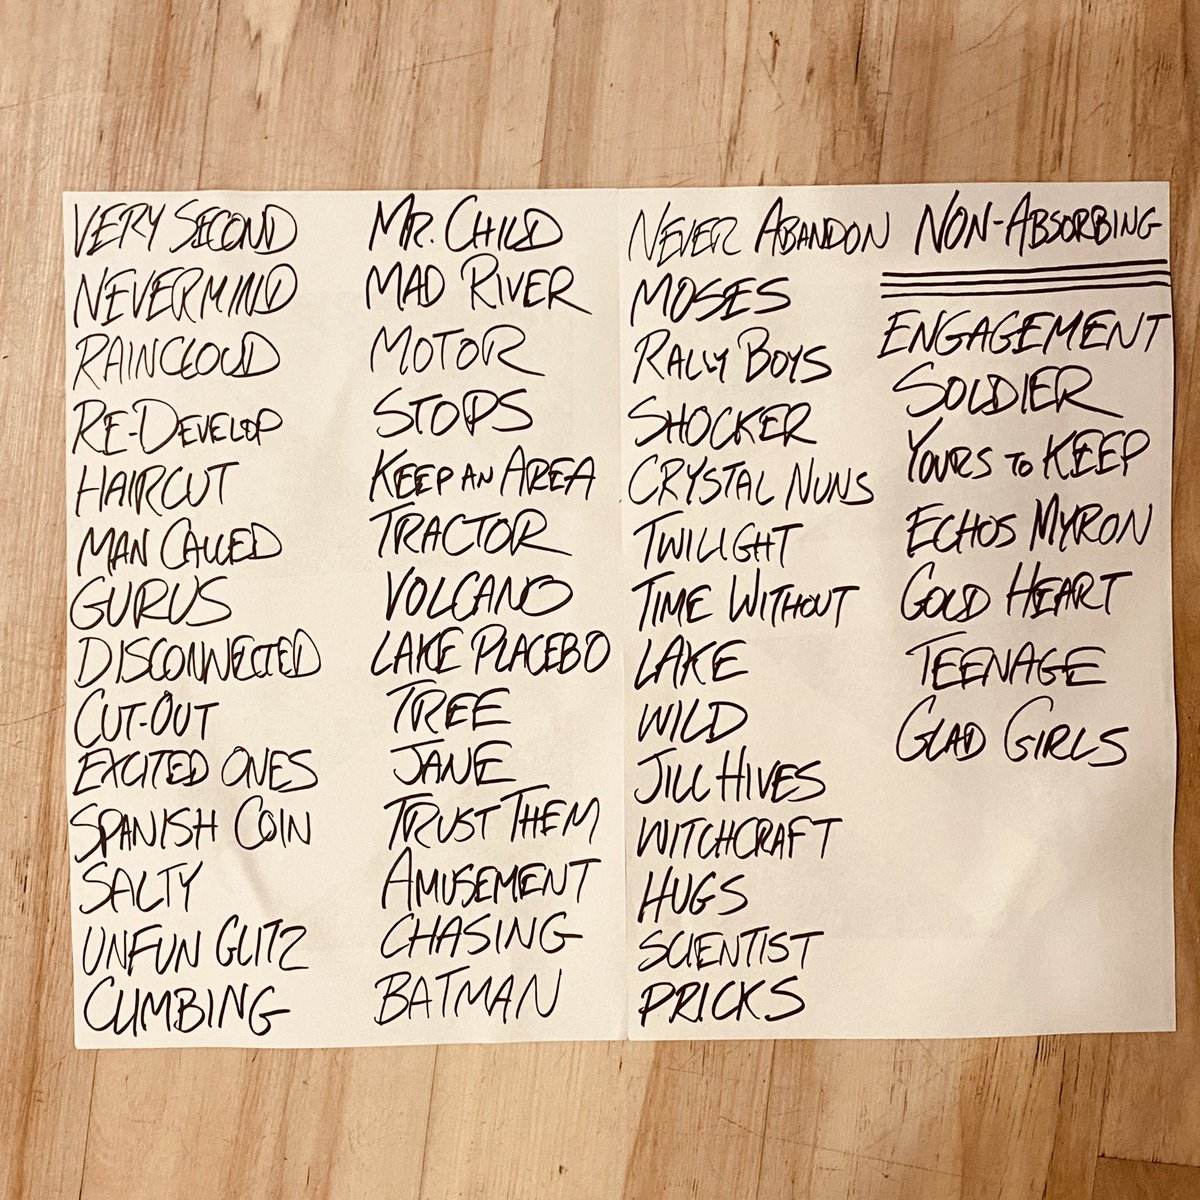 VERY SECOND
NEVERMIND
RAINCLOUD
RE-DEVELOP
HAIRCUT
MAN CALLED
GURUS
DISCONNECTED
CUT-OUT
EXCITED ONES
SPANISH COIN
SALTY
UNFUN GLITZ
CLIMBING
MR. CHILD
MAD RIVER
MOTOR
STOPS
KEEP AN AREA
TRACTOR
VOLCANO
LAKE PLACEBO
TREE
JANE
TRUST THEM
AMUSEMENT
CHASING
BATMAN
NEVER ABANDON
MOSES
RALLY BOYS
SHOCKER
CRYSTAL NUNS
TWILIGHT
TIME WITHOUT
LAKE
WILD
JILL HIVES
WITCHCRAFT
HUGS
SCIENTIST
PRICKS
NON-ABSORBING
ENGAGEMENT
SOLDIER
YOURS TO KEEP
ECHOS MYRON
GOLD HEART
TEENAGE
GLAD GIRLS